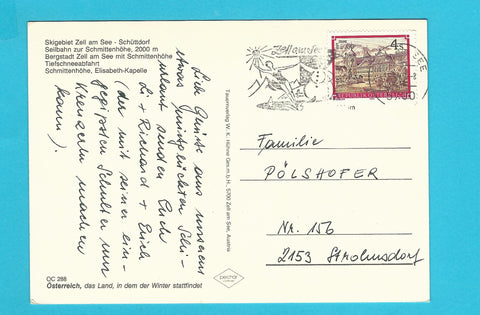 Skigebiet Zell am See - Schüttdorf
Seilbahn zur Schmittenhöhe, 2000 m
Bergstadt Zell am See mit Schmittenhöhe
Tiefschneeabfahrt
Schmittenhöhe, Elisabeth-Kapelle
Lieb Grüße aus unserem
etwas mißglückten Schi-
urlaub senden Euch
Li + Richard + Erich
(der mit seiner ein-
gegipsten Schulter nur
Kreuzerln machen
kann)
Tauernverlag W. K. Hühne Ges.m.b.H., 5700 Zell am See, Austria
Zell am See
SEE
4 S
REPUBLIK ÖSTERREICH
Familie
PÖLSHOFER
Nr. 156
2153 Stronsdorf
OC 288
Österreich, das Land, in dem der Winter stattfindet